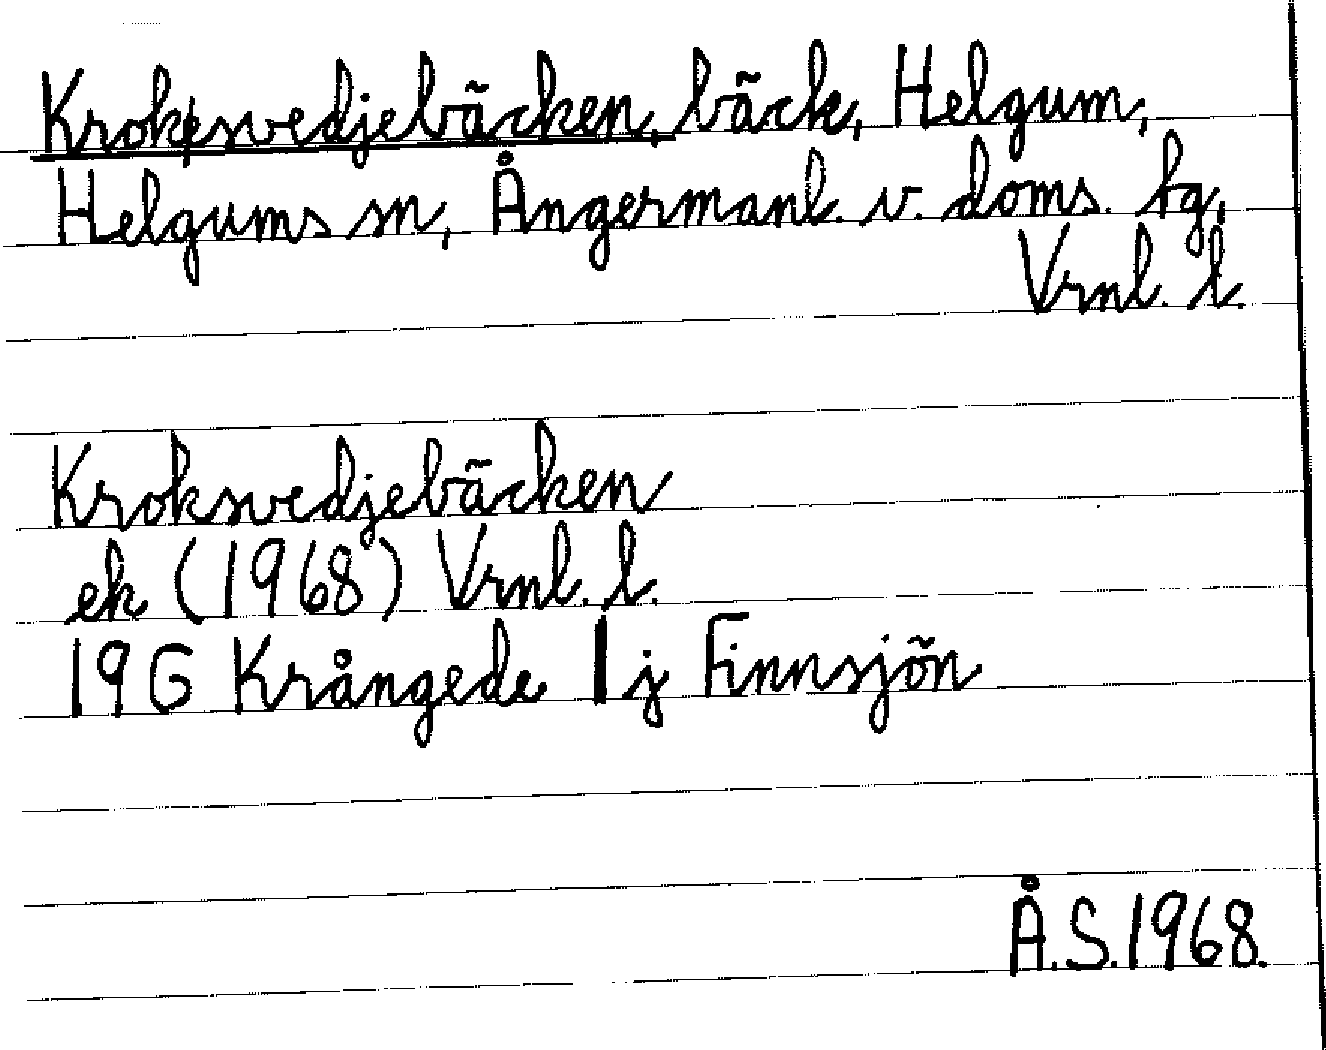 Kroksvedjebäcken, bäck, Helgum,
Helgums sn, Ångermanl. v. doms. fg,
Vrnl. l.
Kroksvedjebäcken
ek (1968) Vrnl. l.
19G Krångede 1 j Finnsjön
Å.S. 1968.